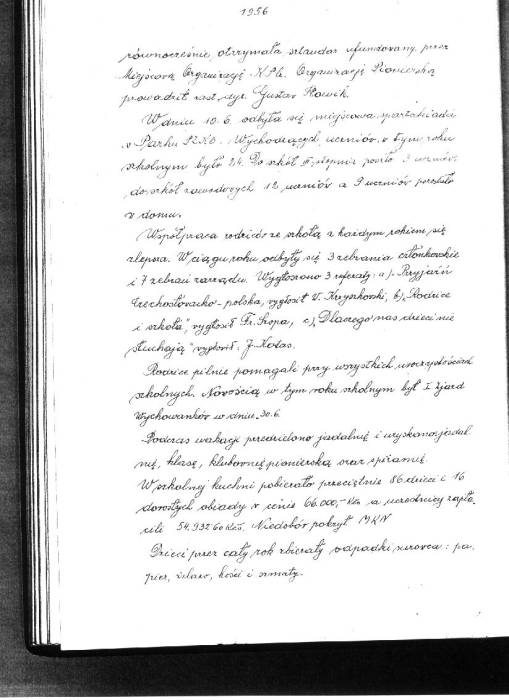 1956
równocześnie otrzymała sztandar ufundowany przez
Miejscową Organizację KPCz. Organizację Pionierską
prowadził zast. dyr. Gustaw Słowik.
W dniu 10.6. odbyła się miejscowa spartakiada
w Parku PZKO. Wychodzących uczniów w tym roku
szkolnym było 24. Do szkół II. stopnia poszło 3 uczniów
do szkół zawodowych 12 uczniów a 9 uczniów pozostało
w domu.
Współpraca rodziców ze szkołą z każdym rokiem się
zlepsza. W ciągu roku odbyły się 3 zebrania członkowskie
i 7 zebrań zarządu. Wygłoszono 3 referaty: a) Przyjaźń
czechosłowacko-polska, wygłosił W. Kryszkowski, b) „Rodzice
i szkoła", wygłosił Fr. Szopa, c) „Dlaczego nas dzieci nie
słuchają" wygłosił J. Kotas.
Rodzice pilnie pomagali przy wszystkich uroczystościach
szkolnych. Nowością w tym roku szkolnym był I Zjazd
Wychowanków w dniu 30.6.
Podczas wakacji przedzielono jadalnię i uzyskano: jadal
nię, klasę, klubownię pionierską oraz spiżarnię.
W szkolnej kuchni pobierało przeciętnie 86 dzieci i 16
dorosłych obiady w cenie 66.000,- Kčs a uczestnicy zapła
cili 54.932,60 Kčs. Niedobór pokrył MRN
Dzieci przez cały rok zbierały odpadki surowca: pa,
pier, żelazo, kości i szmaty.